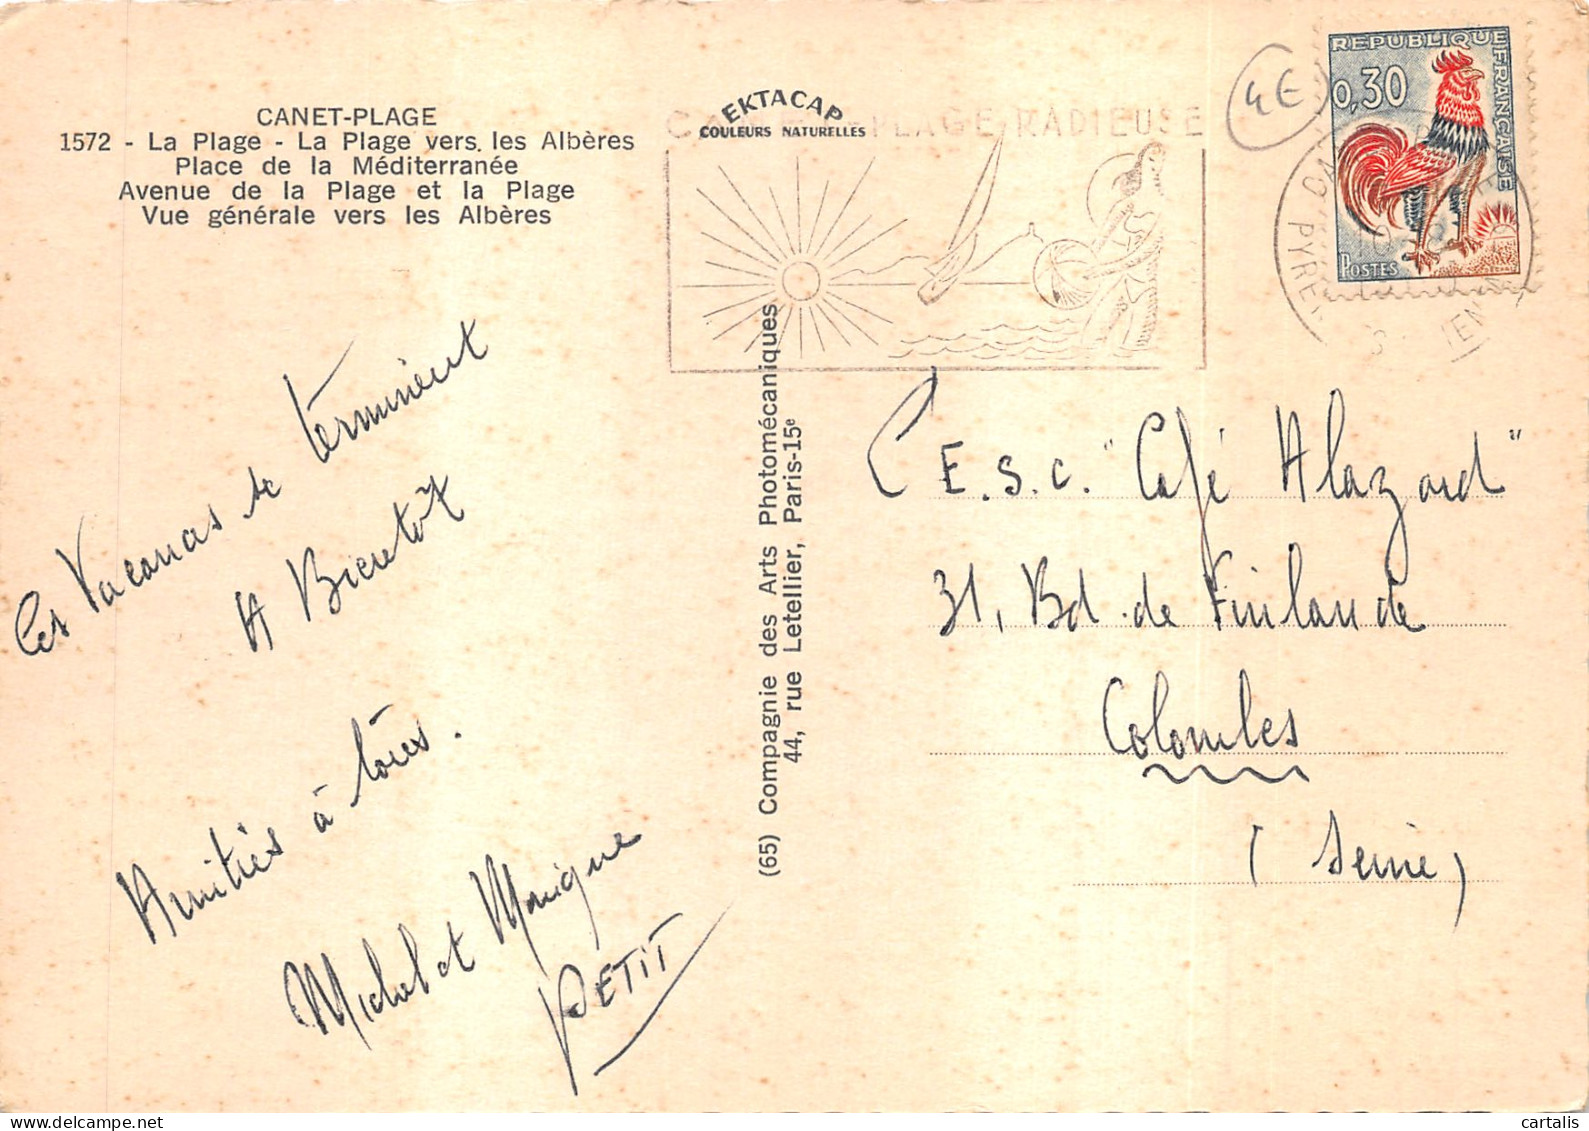 CANET-PLAGE
1572 - La Plage - La Plage vers les Albères
Place de la Méditerranée
Avenue de la Plage et la Plage
Vue générale vers les Albères
EKTACAP
COULEURS NATURELLES
PLAGE RADIEUSE
4E
REPUBLIQUE FRANÇAISE
0,30
POSTES
Les Vacances se terminent
A Bientôt
Amitiés à tous.
Michel et Monique
PETIT
(65) Compagnie des Arts Photomécaniques
44, rue Letellier, Paris-15e
C.E.S.C. "Café Alazard"
31, Bd. de Finlande
Colombes
(Seine)
cartalis